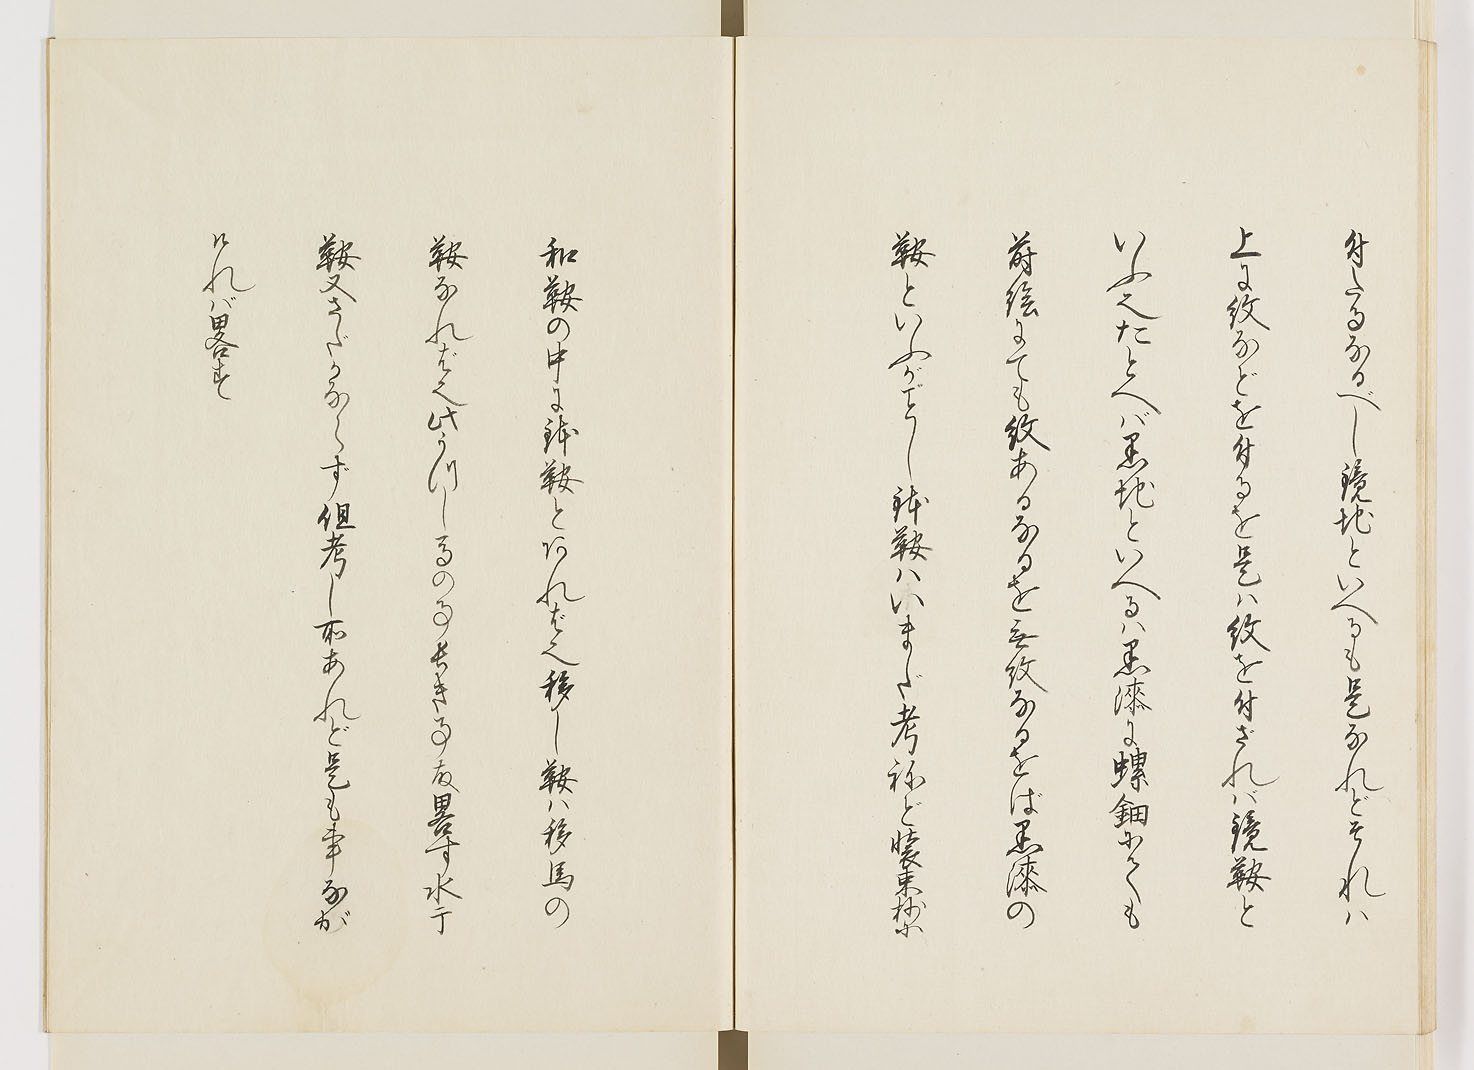 付たるなるべし鏡地といへるも是なれどそれハ
上に紋などを付るを是ハ紋を付ざれバ鏡鞍と
いふ也たとへバ黒地といへるハ黒漆に螺鈿にても
蒔絵にても紋あるなるを無紋なるをば黒漆の
鞍といふがごとし鉢鞍ハいまだ考ねど装束抄に
和鞍の中に鉢鞍とあれば也移し鞍ハ移馬の
鞍なれば也此うつしるの事長き事故畧す水干
鞍又さだかならず但考し所あれど是も事なが
けれバ畧す